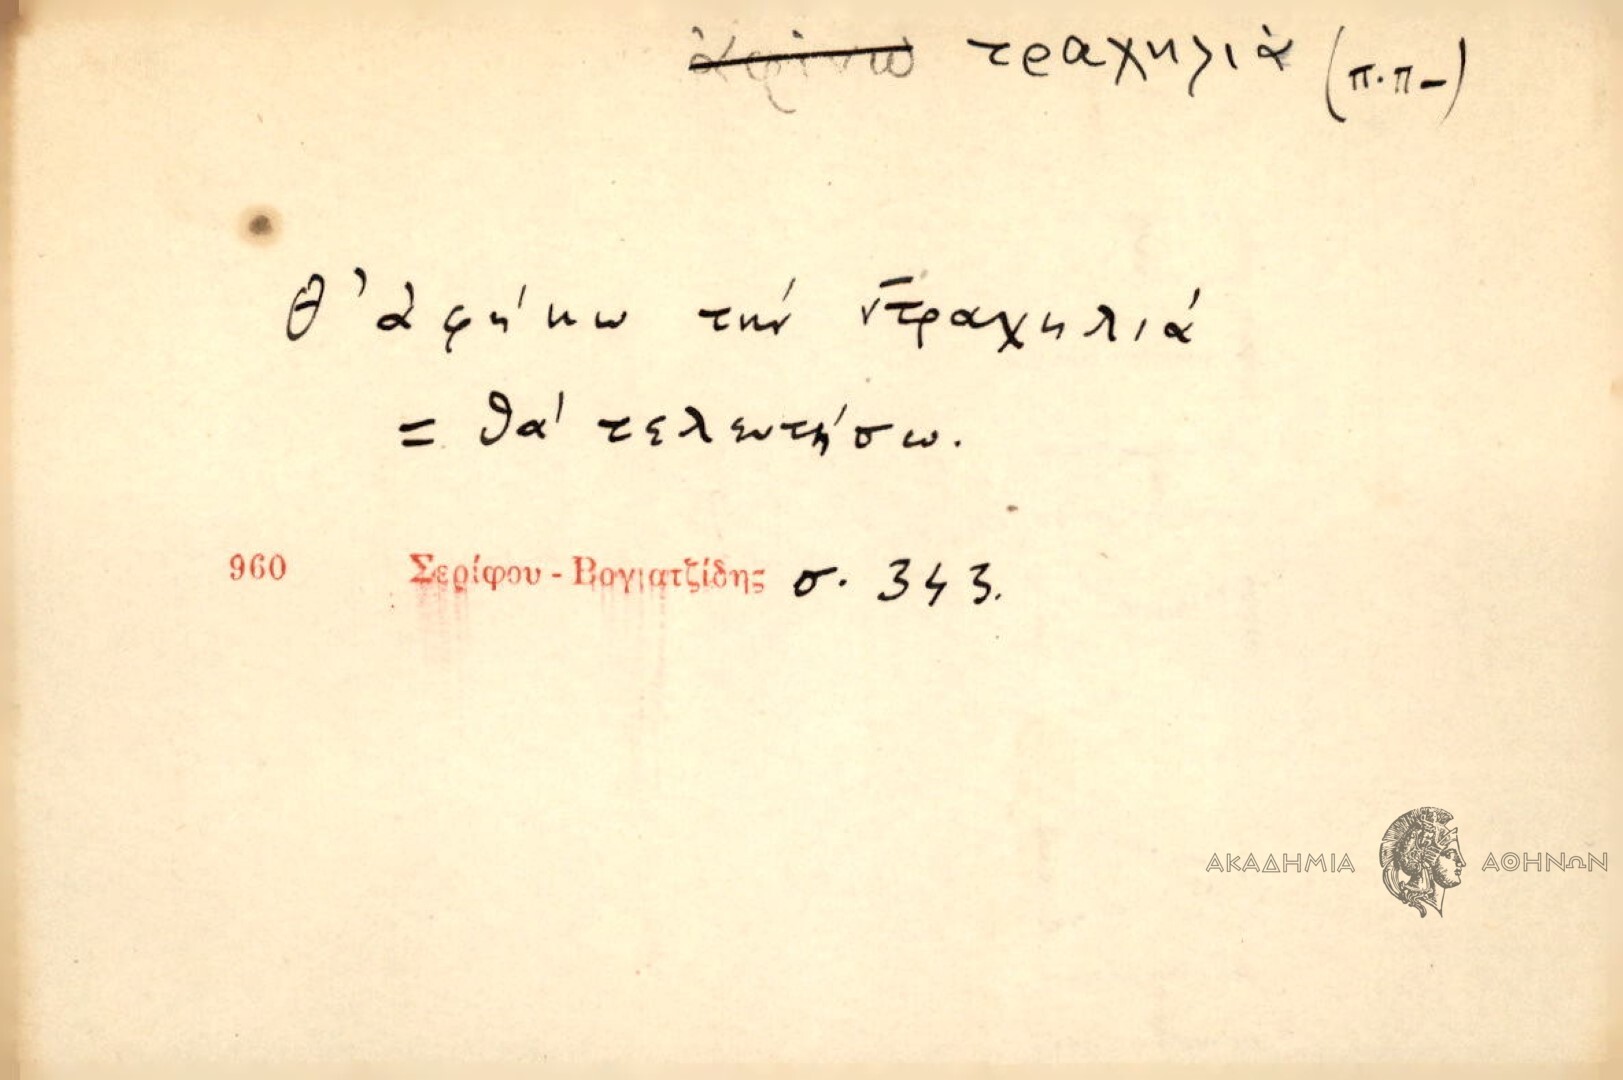 ἀφίνω τραχηλιὰ (π.π-)
Θ' ἀφήκω τὴν ντραχηλιά
= θὰ τελευτήσω.
960 Σερίφου - Βογιατζίδης σ. 343.
ΑΚΑΔΗΜΙΑ ΑΘΗΝΩΝ